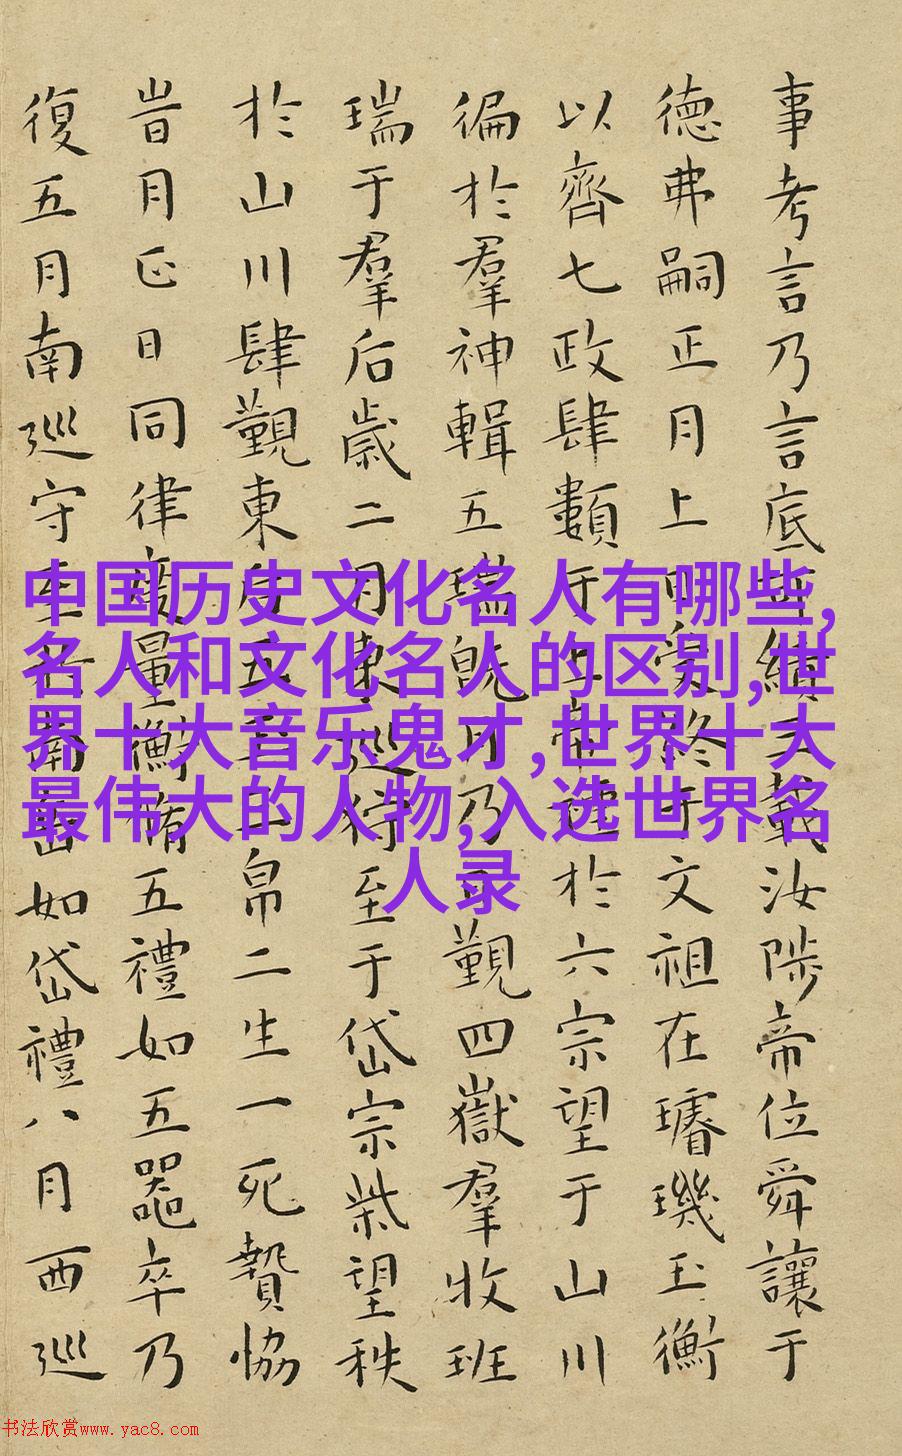 事考言乃言底可績三載汝陟帝位舜讓于
德弗嗣正月上日受終于文祖在璿璣玉衡
以齊七政肆類于上帝禋於六宗望于山川
徧於羣神輯五瑞既月乃日覲四嶽羣牧班
瑞于羣后歲二月東巡狩至于岱宗柴望秩
於山川肆覲東后五玉三帛二生一死贄協
旹月正日同律度量衡脩五禮如五器卒乃
復五月南巡守至于南岳如岱禮八月西巡
中国历史文化名人有哪些,
名人和文化名人的区别,世
界十大音乐鬼才,世界十大
最伟大的人物,入选世界名
人录
书法欣赏www.yac8.com